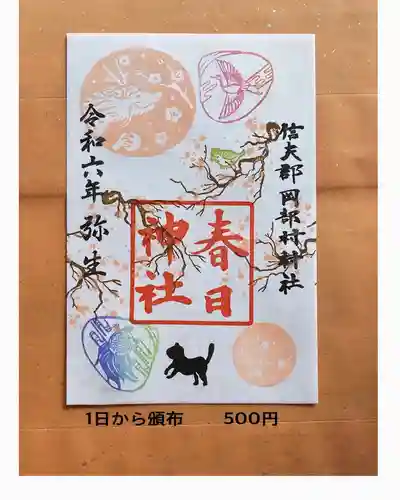 信夫郡岡部村村社
春日
神社
令和六年 弥生
1日から頒布 500円